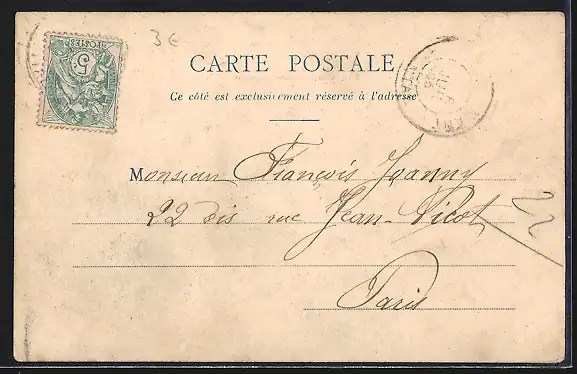 3 €
5
POSTES
CARTE POSTALE
Ce côté est exclusivement réservé à l'adresse
Monsieur François Joanny
22 bis rue Jean-Vicot
Paris
22